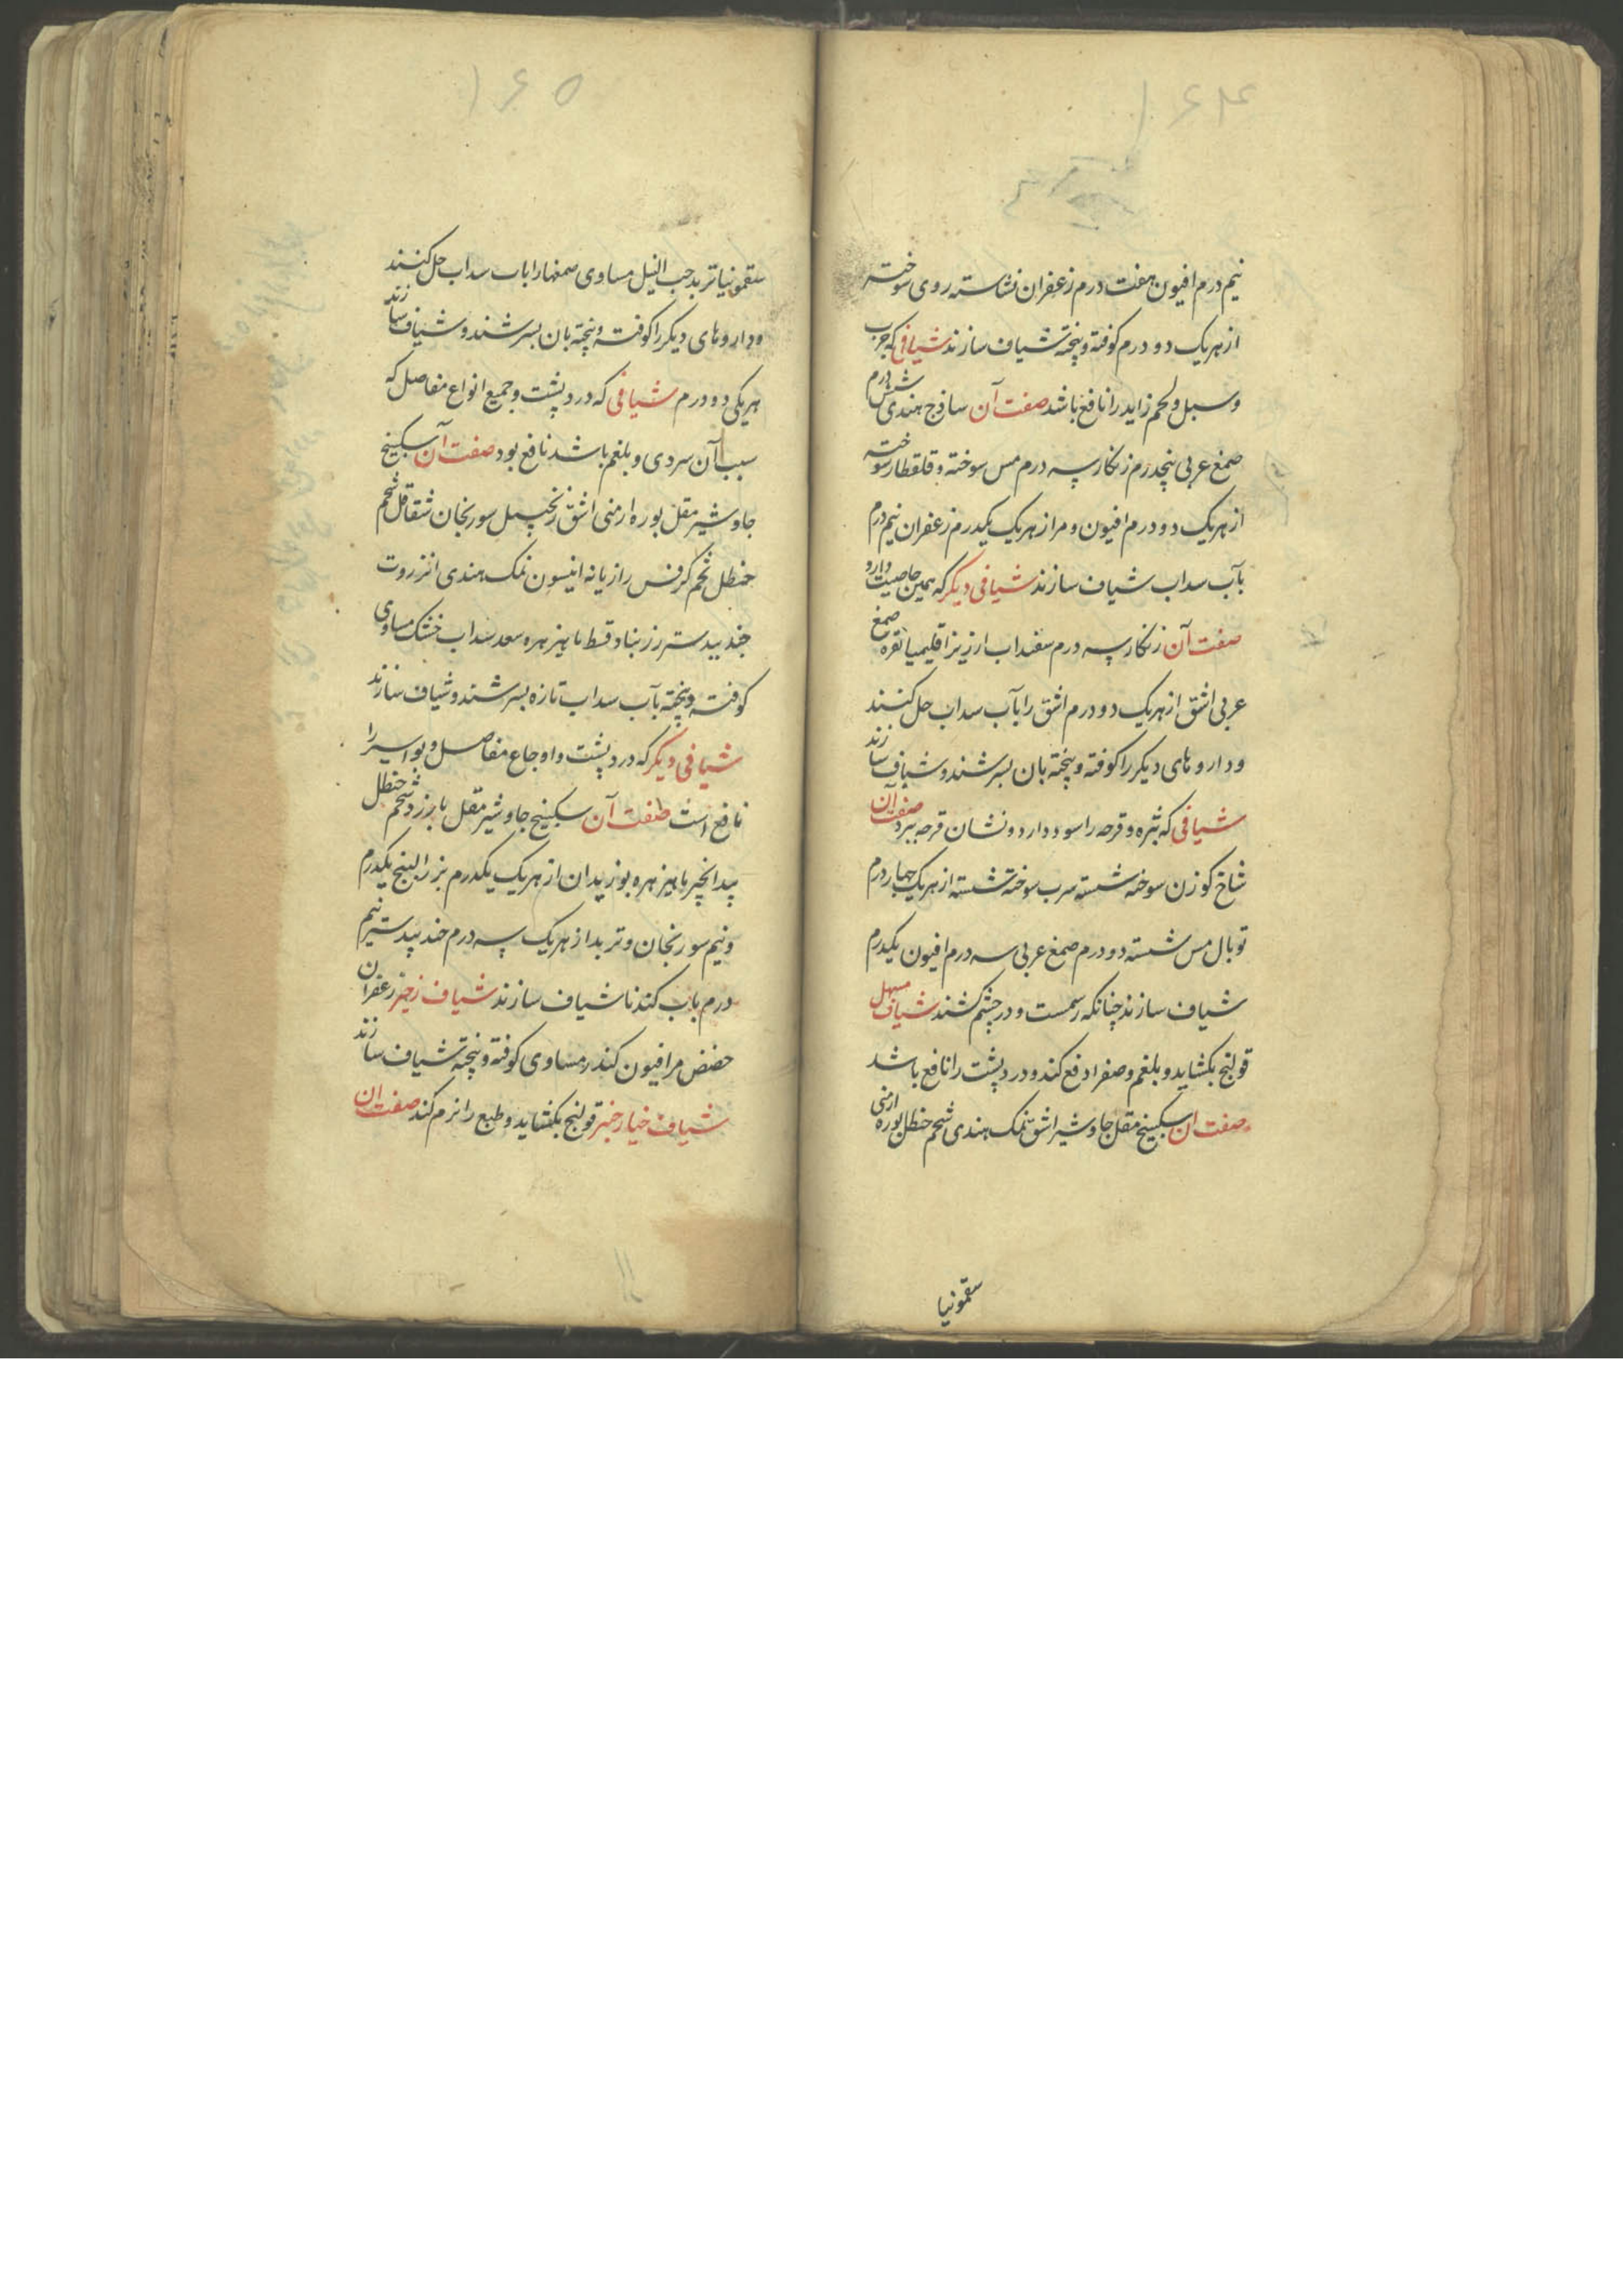 ۱۶۴
نیم درم افیون هفت درم زعفران نشاسته روی سوخته
از هریک دو درم کوفته و پخته شیاف سازند شیافی که جرب
و سبل و لحم زاید را نافع باشد صفت آن ساذج هندی شش درم
صمغ عربی پنجدرم زنکار سه درم مس سوخته و قلقطار سوخته
از هریک دو درم افیون و مر از هریک یکدرم زعفران نیم درم
بآب سداب شیاف سازند شیافی دیکر که همین خاصیت دارد
صفت آن زنکار سه درم سفیداب ارزیز اقلیمیا نقره صمغ
عربی اشق از هریک دو درم اشق را بآب سداب حل کنند
و داروهای دیکر را کوفته و پخته بان بسرشند و شیاف سازند
شیافی که بثره و قرحه را سود دارد و نشان قرحه ببرد صفت آن
شاخ کوزن سوخته شسته سرب سوخته شسته از هریک چهار درم
توبال مس شسته دو درم صمغ عربی سه درم افیون یکدرم
شیاف سازند چنانکه رسمست و در چشم کشند شیاف مسهل
قولنج بکشاید و بلغم و صفرا دفع کند و درد پشت را نافع باشد
صفت ان سکبینج مقل جاوشیر اشق نمک هندی شحم حنظل بوره ارمنی
سقمونیا
۱۶۵
سقمونیا تربد حب النیل مساوی صمغها را باب سداب حل کنند
و داروهای دیکر را کوفته و پخته بان بسرشند و شیاف سازند
هریکی دو درم شیافی که درد پشت و جمیع انواع مفاصل که
سبب آن سردی و بلغم باشد نافع بود صفت آن سکبینج
جاوشیر مقل بوره ارمنی اشق زنجبیل سورنجان شقاقل شحم
حنظل تخم کرفس رازیانه انیسون نمک هندی انزروت
جندبیدستر زرنباد قسط ماهیزهره سعد سداب خشک مساوی
کوفته و پخته بآب سداب تازه بسرشند و شیاف سازند
شیافی دیکر که درد پشت و اوجاع مفاصل و بواسیر را
نافع است صفت آن سکبینج جاوشیر مقل بارزد شحم حنظل
بیدانجیر ماهیزهره بوزیدان از هریک یکدرم بزر البنج یکدرم
و نیم سورنجان و تربد از هریک سه درم جندبیدستر نیم
درم باب کندنا شیاف سازند شیاف زحیر زعفران
حضض مر افیون کندر مساوی کوفته و پخته شیاف سازند
شیاف خیارچنبر قولنج بکشاید و طبع را نرم کند صفت ان